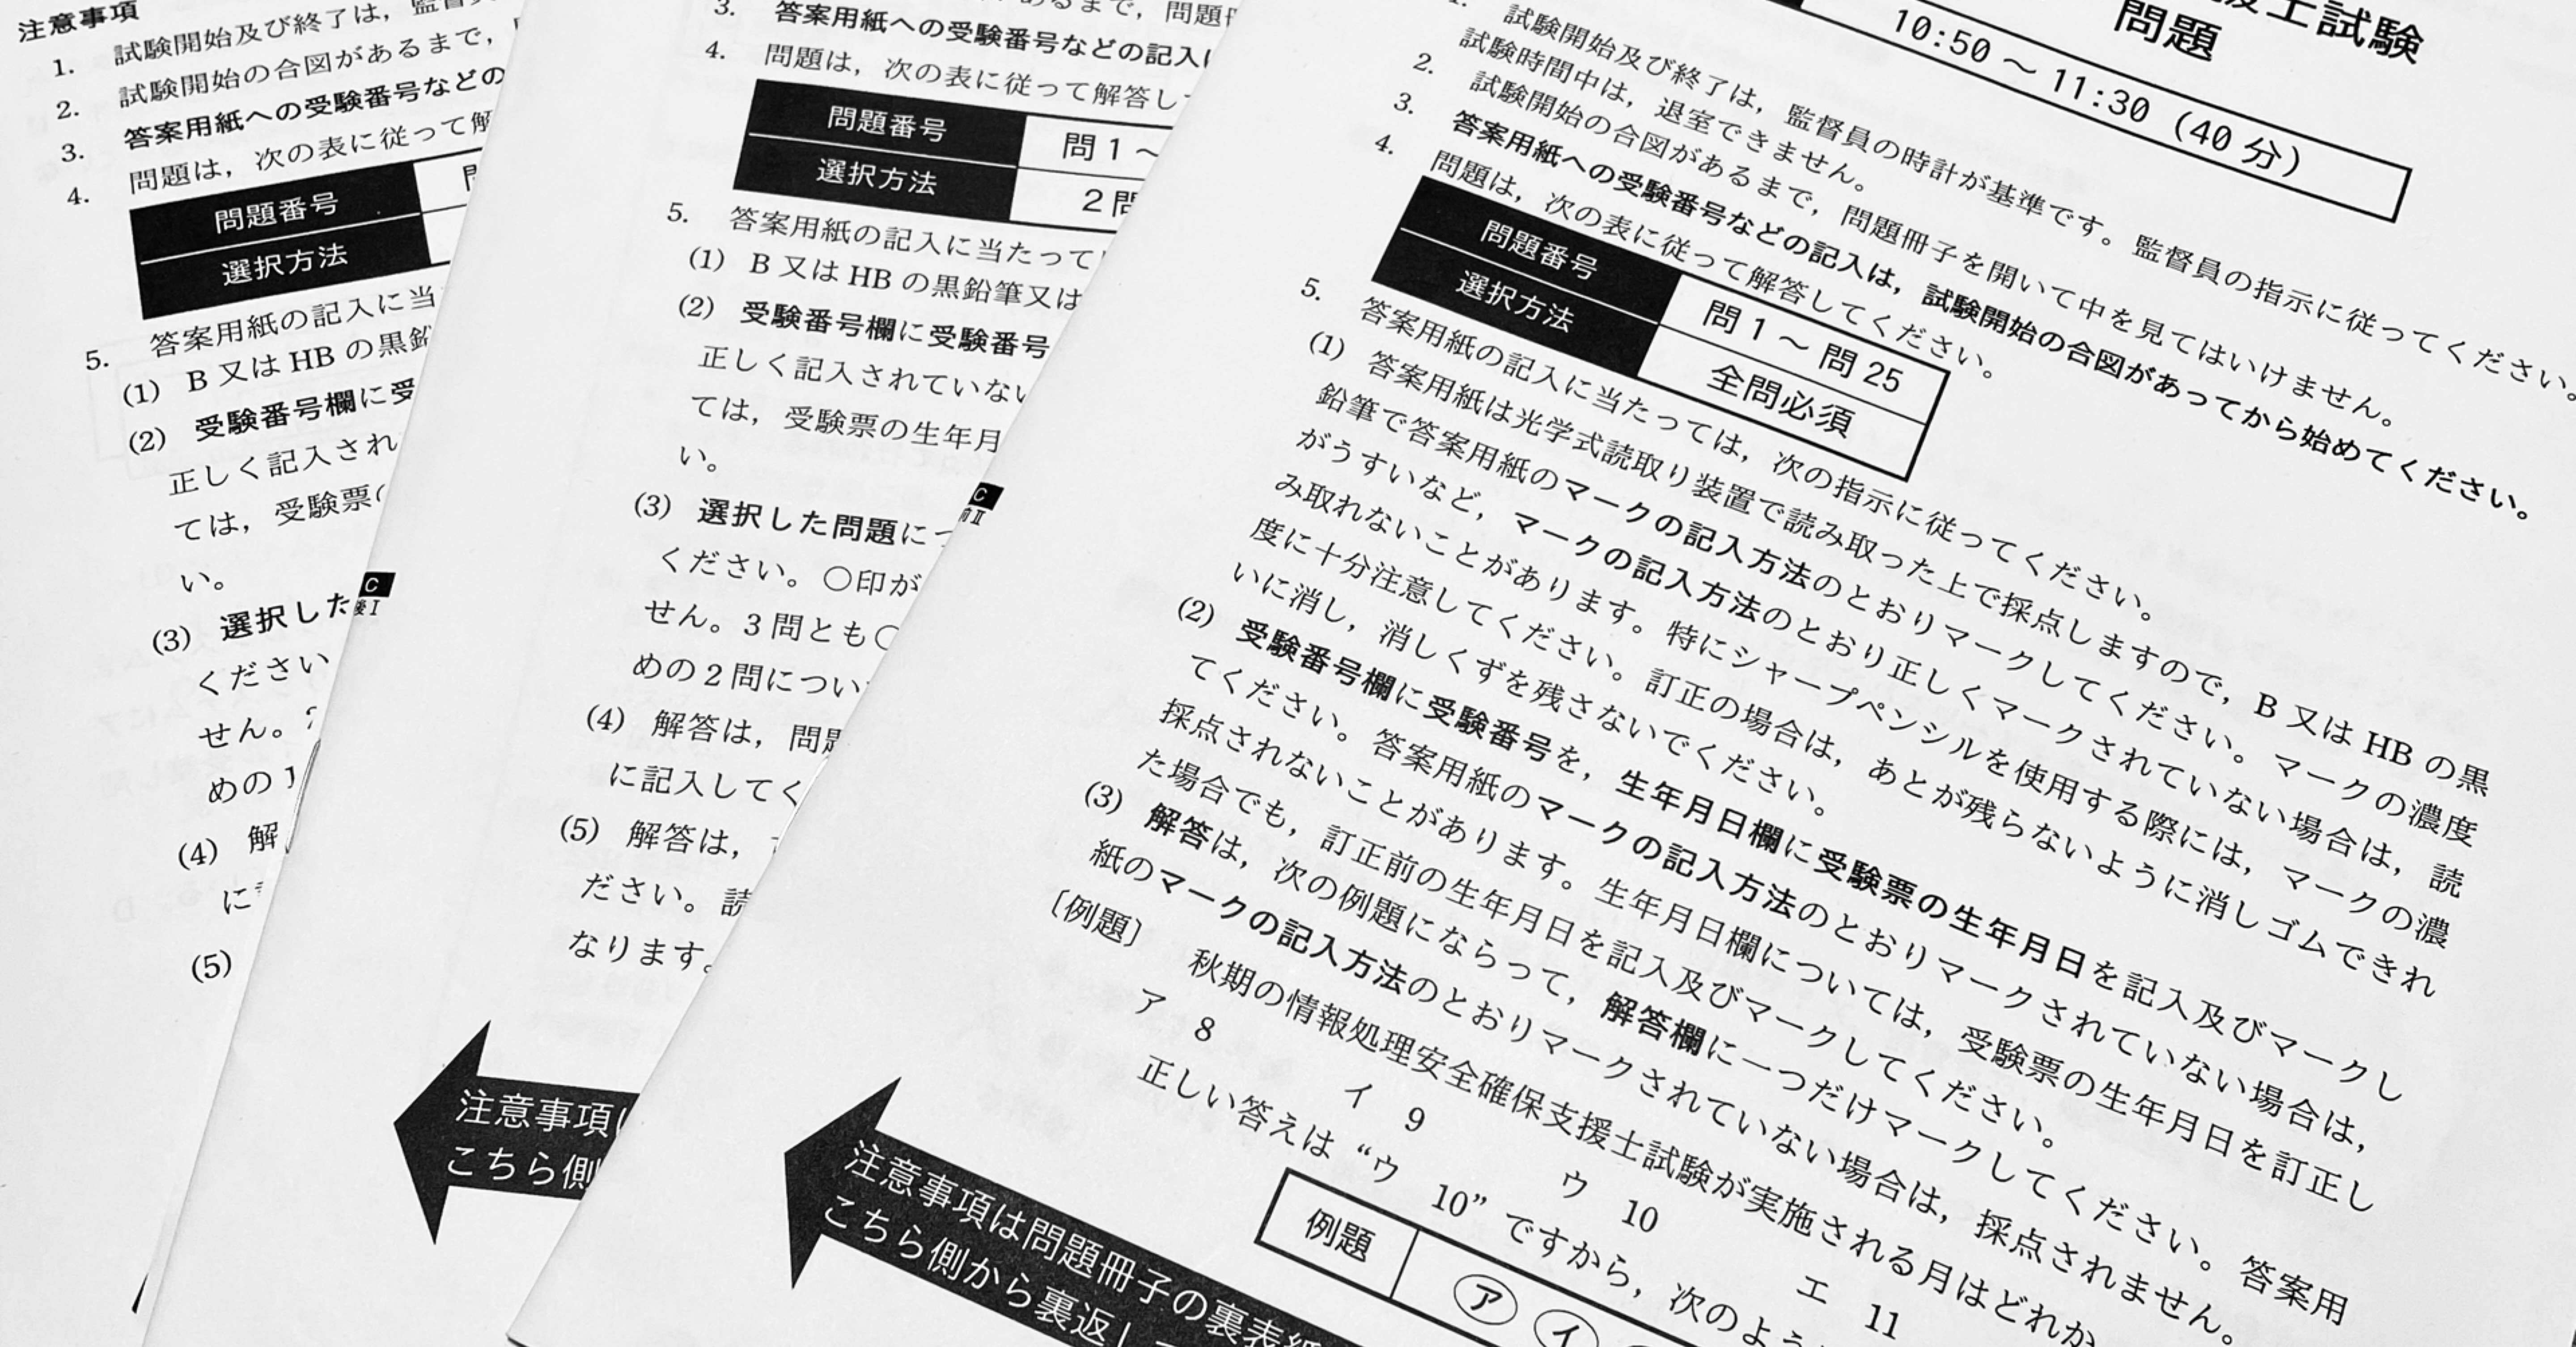 注意事項
1. 試験開始及び終了は，監督員
2. 試験開始の合図があるまで，
3. 答案用紙への受験番号などの
4. 問題は，次の表に従って解
問題番号
選択方法
5. 答案用紙の記入に当
(1) B 又は HB の黒鉛
(2) 受験番号欄に受
正しく記入され
ては，受験票
い。
(3) 選択した
ください
せん。
めの 1
(4) 解
に
(5)
C
後Ⅰ
あるまで，問題
3. 答案用紙への受験番号などの記入
4. 問題は，次の表に従って解答し
問題番号 問 1 ～
選択方法 2 問
5. 答案用紙の記入に当たって
(1) B 又は HB の黒鉛筆又は
(2) 受験番号欄に受験番号
正しく記入されていない
ては，受験票の生年月
い。
(3) 選択した問題に
ください。○印が
せん。3 問とも○
めの 2 問につい
(4) 解答は，問題
に記入してく
(5) 解答は，
ださい。読
なります。
注意事項
こちら側
C
前Ⅱ
士試験
問題
10:50 ～ 11:30 (40 分)
1. 試験開始及び終了は，監督員の時計が基準です。監督員の指示に従ってください。
試験時間中は，退室できません。
2. 試験開始の合図があるまで，問題冊子を開いて中を見てはいけません。
3. 答案用紙への受験番号などの記入は，試験開始の合図があってから始めてください。
4. 問題は，次の表に従って解答してください。
問題番号 問 1 ～ 問 25
選択方法 全問必須
5. 答案用紙の記入に当たっては，次の指示に従ってください。
(1) 答案用紙は光学式読取り装置で読み取った上で採点しますので，B 又は HB の黒
鉛筆で答案用紙のマークの記入方法のとおりマークしてください。マークの濃度
がうすいなど，マークの記入方法のとおり正しくマークされていない場合は，読
み取れないことがあります。特にシャープペンシルを使用する際には，マークの濃
度に十分注意してください。訂正の場合は，あとが残らないように消しゴムできれ
いに消し，消しくずを残さないでください。
(2) 受験番号欄に受験番号を，生年月日欄に受験票の生年月日を記入及びマークし
てください。答案用紙のマークの記入方法のとおりマークされていない場合は，
採点されないことがあります。生年月日欄については，受験票の生年月日を訂正し
た場合でも，訂正前の生年月日を記入及びマークしてください。
(3) 解答は，次の例題にならって，解答欄に一つだけマークしてください。答案用
紙のマークの記入方法のとおりマークされていない場合は，採点されません。
〔例題〕 秋期の情報処理安全確保支援士試験が実施される月はどれか
ア 8 イ 9 ウ 10 エ 11
正しい答えは “ウ 10” ですから，次のよう
例題 ア イ
注意事項は問題冊子の裏表紙
こちら側から裏返し